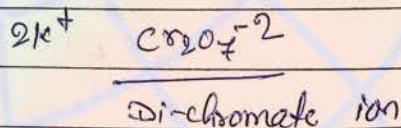 2K⁺ Cr₂O₇⁻²
Di-chromate ion